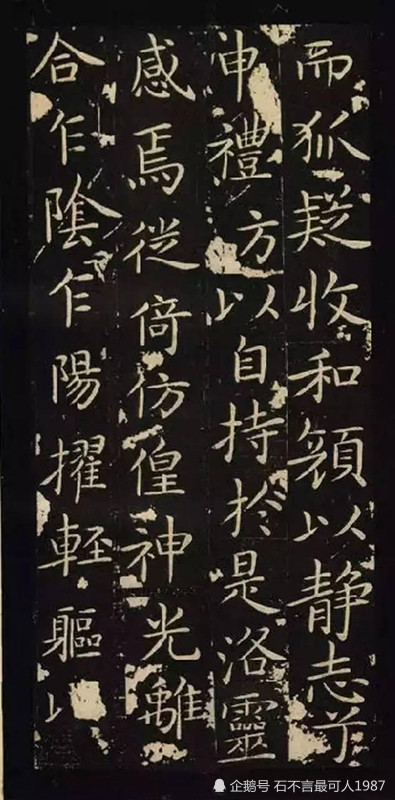 而狐疑收和顏以静志兮
申禮方以自持於是洛靈
感焉徙倚仿偟神光離
合乍陰乍陽擢輕軀以
企鹅号 石不言最可人1987